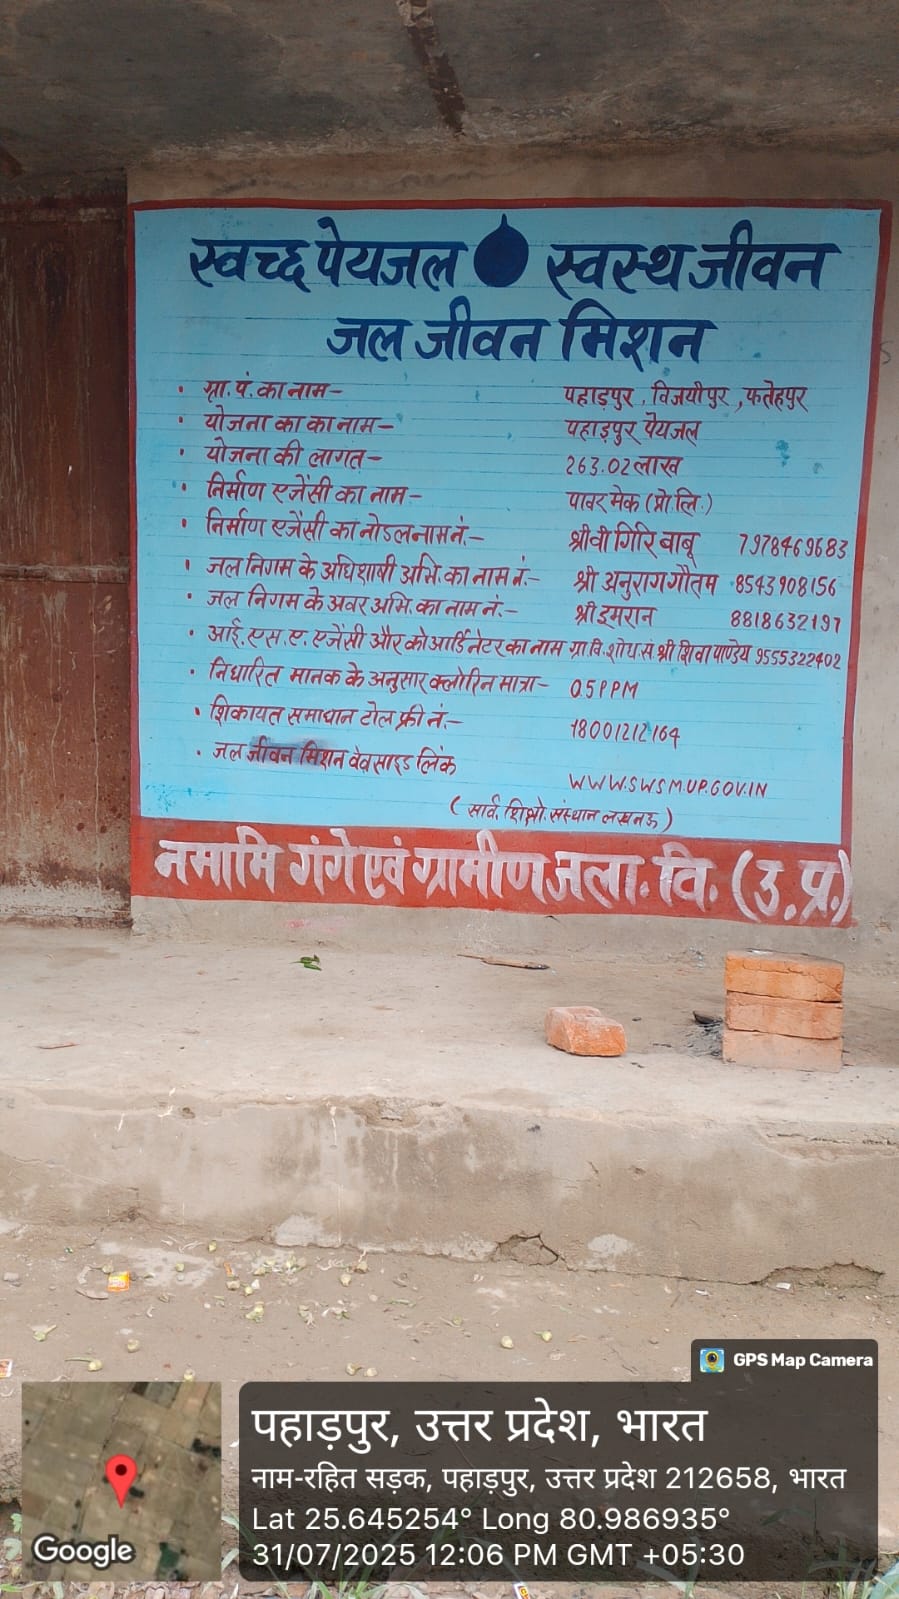 स्वच्छ पेयजल स्वस्थ जीवन
जल जीवन मिशन
• ग्रा. पं. का नाम- पहाड़पुर, विजयीपुर, फतेहपुर
• योजना का का नाम- पहाड़पुर पेयजल
• योजना की लागत- 263.02 लाख
• निर्माण एजेंसी का नाम- पावर मेक (प्रो. लि.)
• निर्माण एजेंसी का नोडल नाम नं.- श्री वी गिरि बाबू 7978469683
• जल निगम के अधिशाषी अभि. का नाम नं.- श्री अनुराग गौतम 8543908156
• जल निगम के अवर अभि. का नाम नं.- श्री इमरान 8818632197
• आई. एस. ए. एजेंसी और कोआर्डिनेटर का नाम ग्रा वि. शोध. सं. श्री शिवा पाण्डेय 9555322402
• निर्धारित मानक के अनुसार क्लोरिन मात्रा- 0.5 PPM
• शिकायत समाधान टोल फ्री नं.- 18001212164
• जल जीवन मिशन वेव साइड लिंक
WWW.SWSM.UP.GOV.IN
(सार्व. शिक्षो. संस्थान लखनऊ)
नमामि गंगे एवं ग्रामीण जला. वि. (उ. प्र.)
GPS Map Camera
पहाड़पुर, उत्तर प्रदेश, भारत
नाम-रहित सड़क, पहाड़पुर, उत्तर प्रदेश 212658, भारत
Lat 25.645254° Long 80.986935°
31/07/2025 12:06 PM GMT +05:30
Google